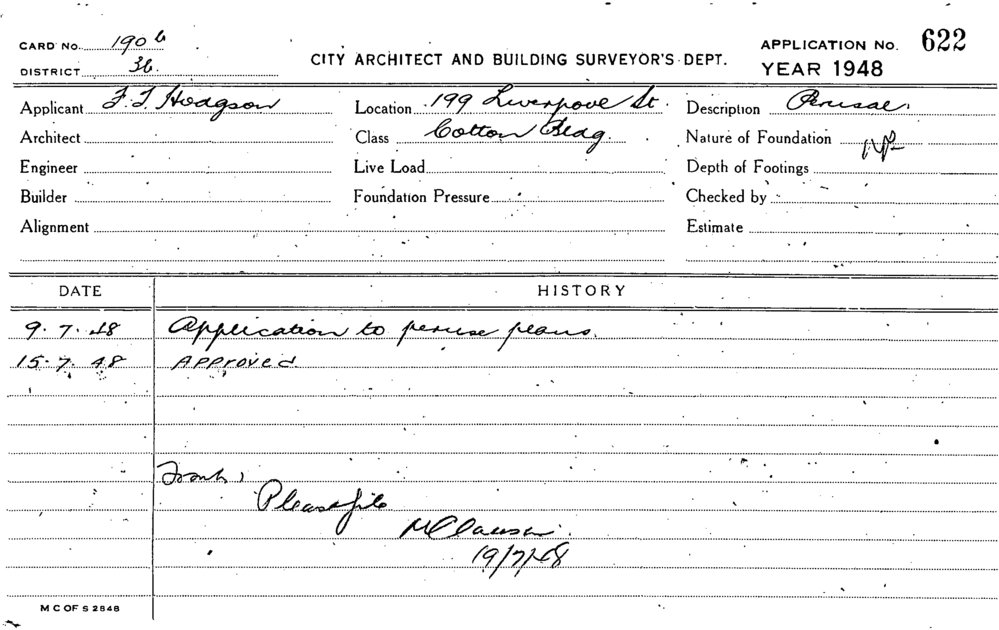 CARD No. 190
DISTRICT 36.
CITY ARCHITECT AND BUILDING SURVEYOR'S DEPT.
APPLICATION No. 622
YEAR 1948
Applicant F. T. Hodgson Location 199 Liverpool St. Description Perusal.
Architect Class Cotton Bldg. Nature of Foundation
Engineer Live Load Depth of Footings
Builder Foundation Pressure Checked by
Alignment Estimate
DATE HISTORY
9. 7. 48 Application to peruse plans.
15. 7. 48 Approved
Please file
19/7/48
M C OF S 2848